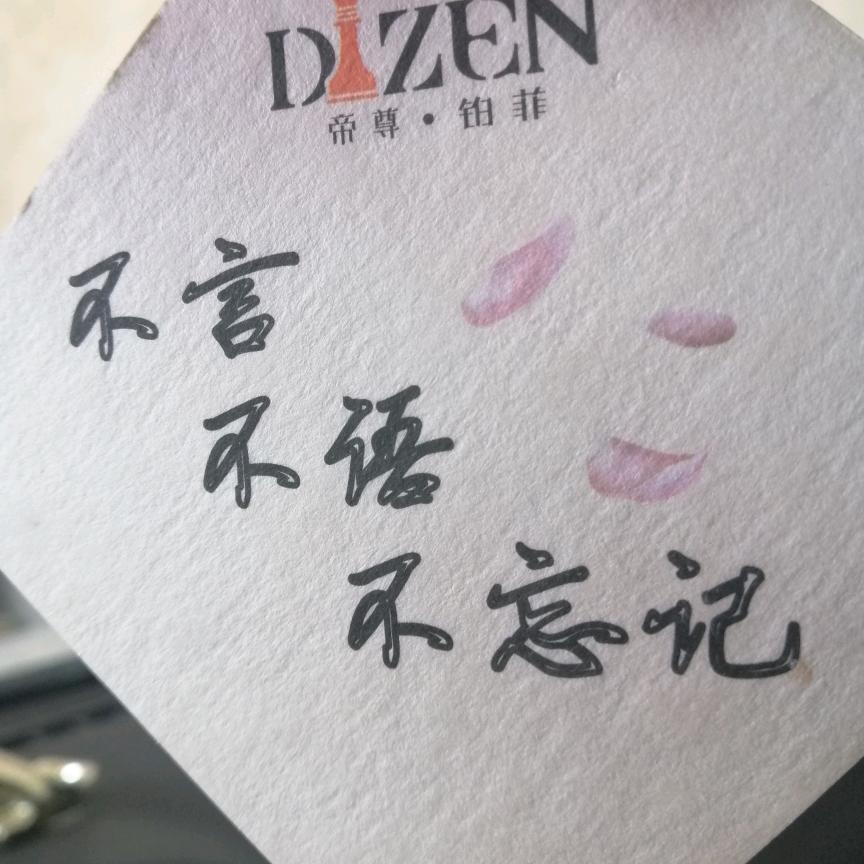 DIZEN
帝尊·铂菲
不言
不语
不忘记